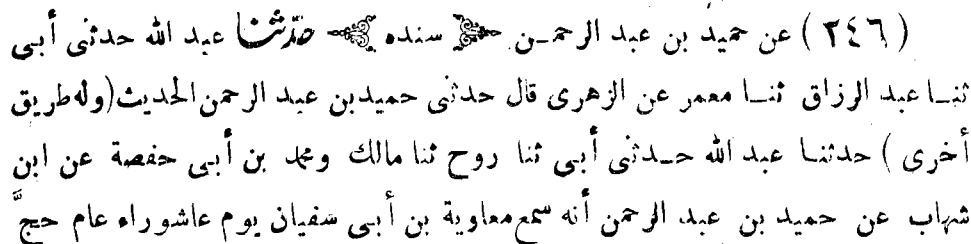 (٢٤٦) عن حميد بن عبد الرحمـن ﴿ سنده ﴾ حدّثنا عبد الله حدثنى أبى
ثنـا عبد الرزاق ثنـا معمر عن الزهرى قال حدثنى حميدبن عبد الرحمن الحديث(وله طريق
أخرى) حدثنـا عبد الله حـدثنى أبى ثنا روح ثنا مالك ومحمد بن أبى حفصة عن ابن
شهاب عن حميد بن عبد الرحمن أنه سمع معاوية بن أبى سفيان يوم عاشوراء عام حجَّ